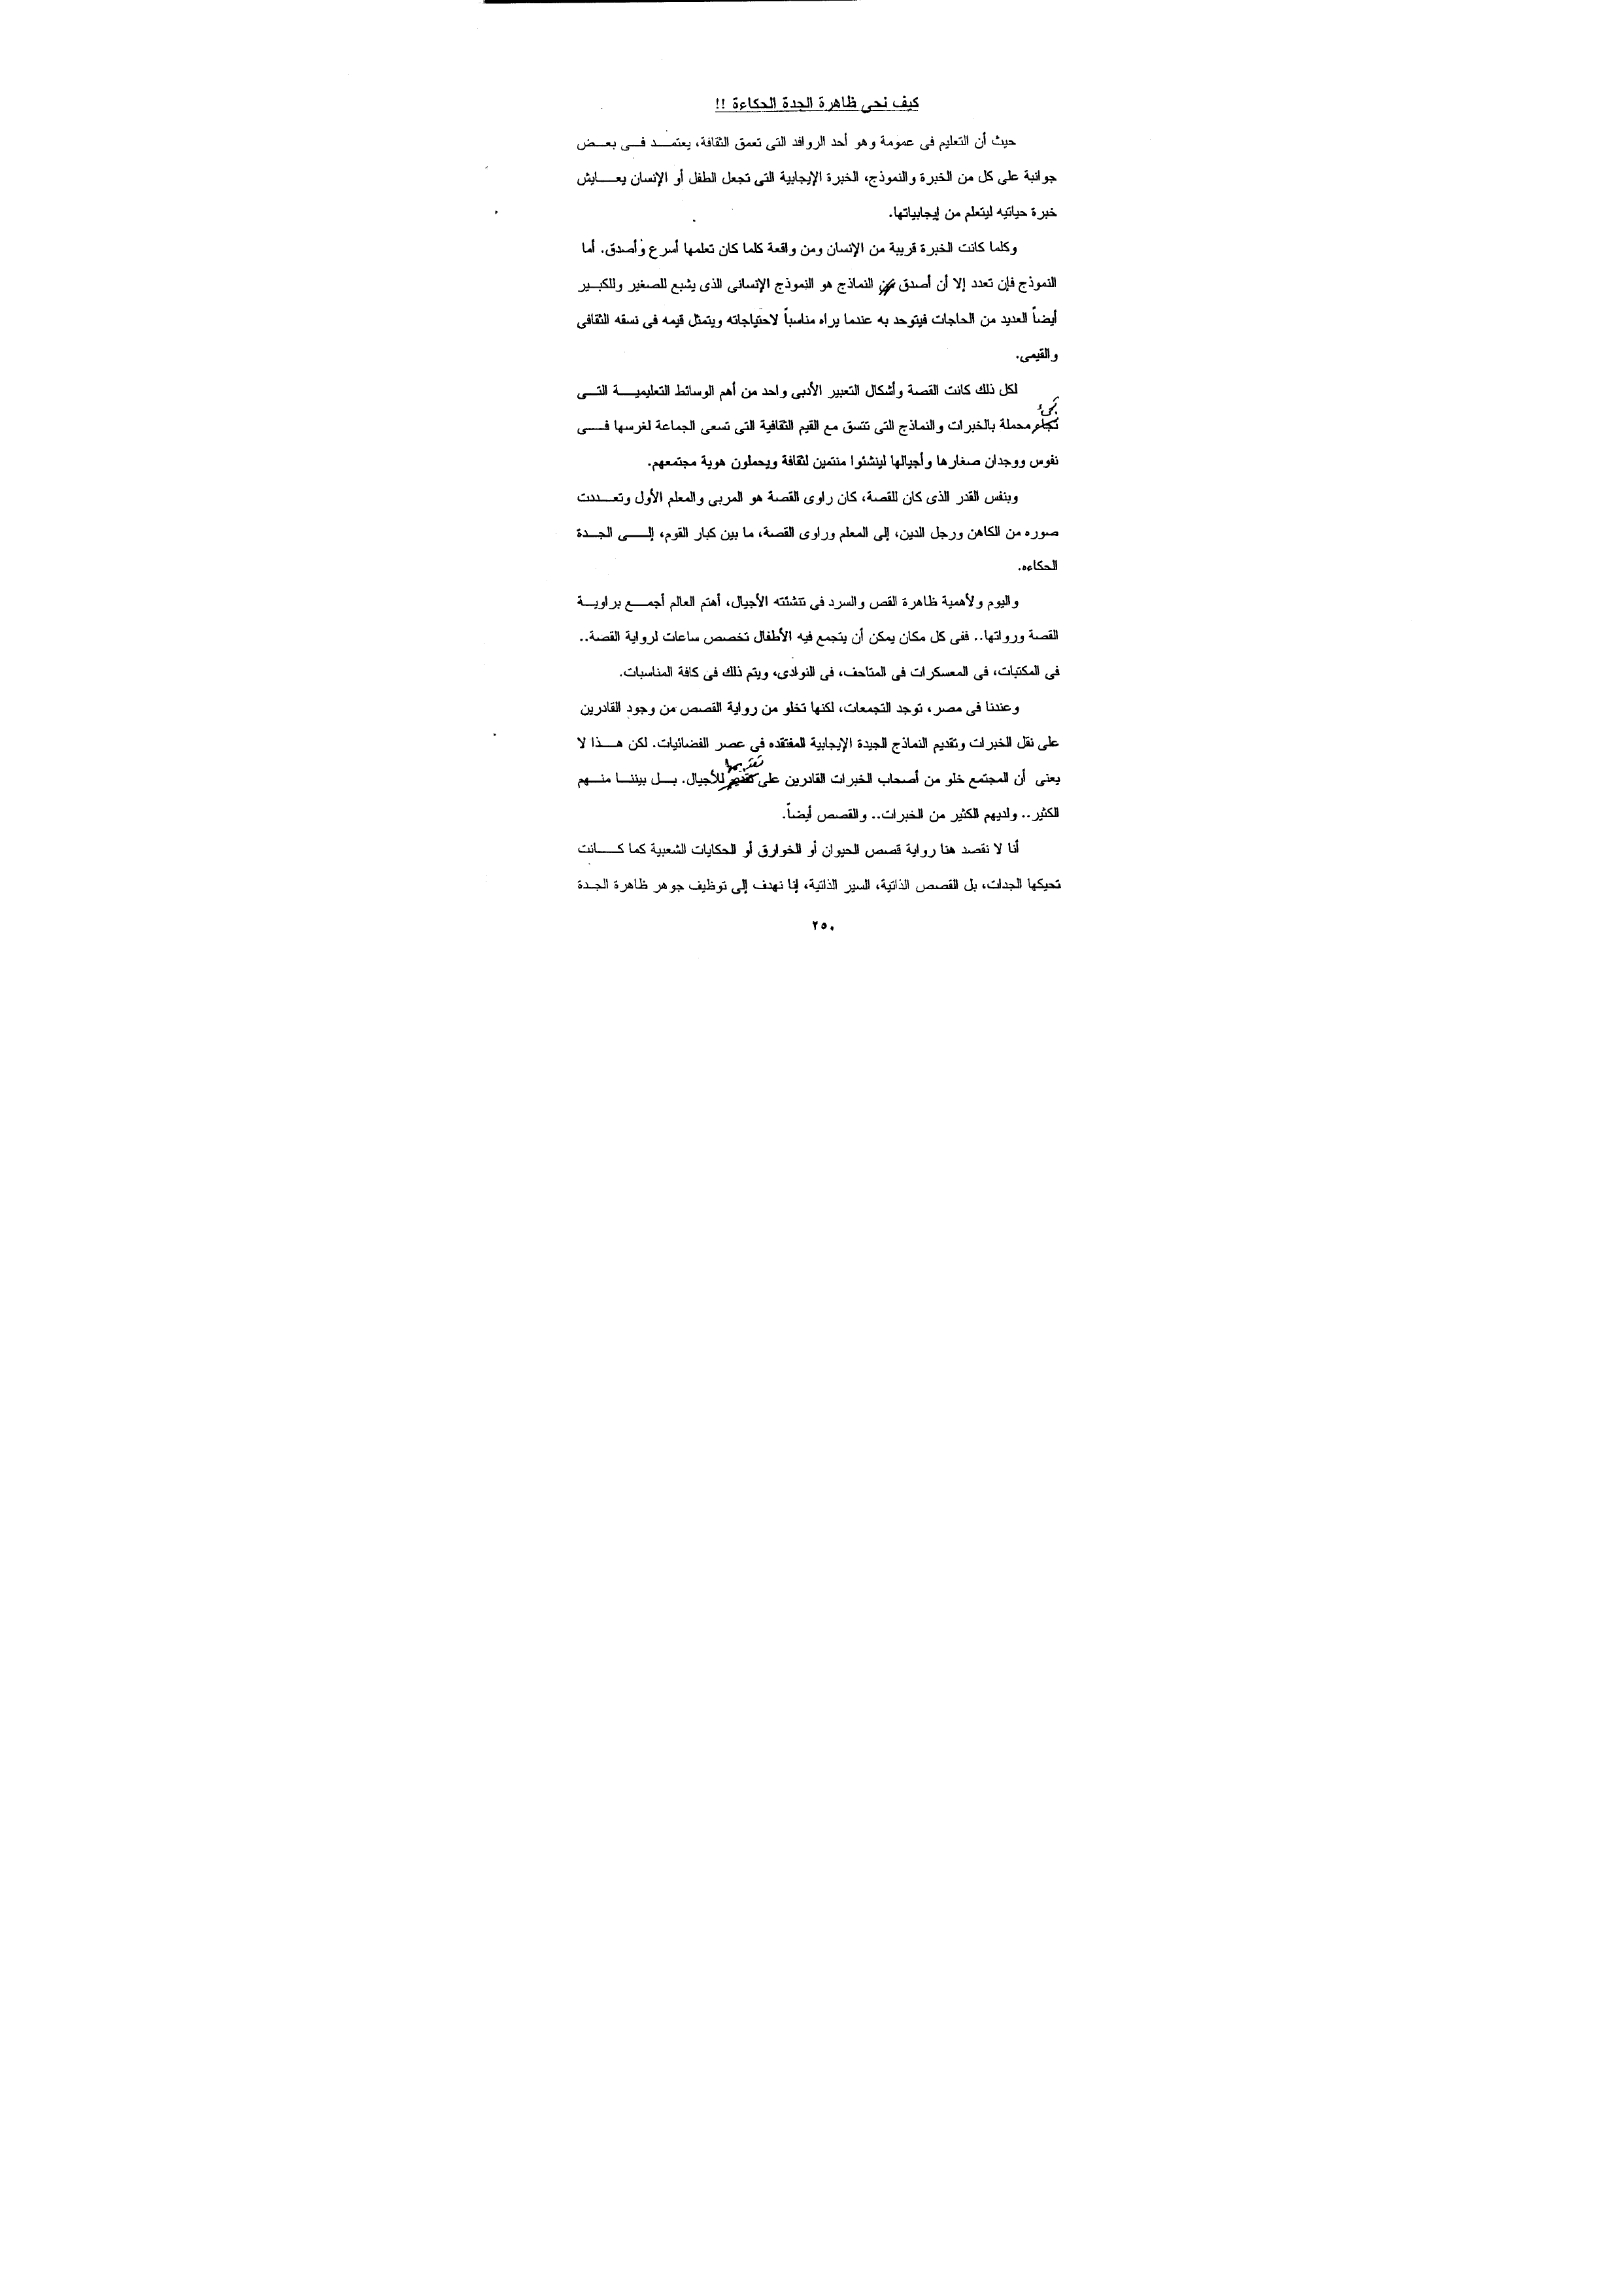 كيف نحى ظاهرة الجدة الحكاءة !!
حيث أن التعليم فى عمومة وهو أحد الروافد التى تعمق الثقافة، يعتمد فى بعض
جوانبة على كل من الخبرة والنموذج، الخبرة الإيجابية التى تجعل الطفل أو الإنسان يعايش
خبرة حياتيه ليتعلم من إيجابياتها.
وكلما كانت الخبرة قريبة من الإنسان ومن واقعة كلما كان تعلمها أسرع وأصدق. أما
النموذج فإن تعدد إلا أن أصدق النماذج هو النموذج الإنسانى الذى يشبع للصغير وللكبير
أيضاً العديد من الحاجات فيتوحد به عندما يراه مناسباً لاحتياجاته ويتمثل قيمه فى نسقه الثقافى
والقيمى.
لكل ذلك كانت القصة وأشكال التعبير الأدبى واحد من أهم الوسائط التعليمية التى
تجىء
محملة بالخبرات والنماذج التى تتسق مع القيم الثقافية التى تسعى الجماعة لغرسها فى
نفوس ووجدان صغارها وأجيالها لينشئوا منتمين لثقافة ويحملون هوية مجتمعهم.
وبنفس القدر الذى كان للقصة، كان راوى القصة هو المربى والمعلم الأول وتعددت
صوره من الكاهن ورجل الدين، إلى المعلم وراوى القصة، ما بين كبار القوم، إلى الجدة
الحكاءه.
واليوم ولأهمية ظاهرة القص والسرد فى تنشئته الأجيال، أهتم العالم أجمع براوية
القصة ورواتها.. ففى كل مكان يمكن أن يتجمع فيه الأطفال تخصص ساعات لرواية القصة..
فى المكتبات، فى المعسكرات فى المتاحف، فى النوادى، ويتم ذلك فى كافة المناسبات.
وعندنا فى مصر، توجد التجمعات، لكنها تخلو من رواية القصص من وجود القادرين
على نقل الخبرات وتقديم النماذج الجيدة الإيجابية المفتقده فى عصر الفضائيات. لكن هذا لا
تقديمها
يعنى أن المجتمع خلو من أصحاب الخبرات القادرين على للأجيال. بل بيننا منهم
الكثير.. ولديهم الكثير من الخبرات.. والقصص أيضاً.
أنا لا نقصد هنا رواية قصص الحيوان أو الخوارق أو الحكايات الشعبية كما كانت
تحيكها الجدات، بل القصص الذاتية، السير الذاتية، إنا نهدف إلى توظيف جوهر ظاهرة الجدة
٢٥٠